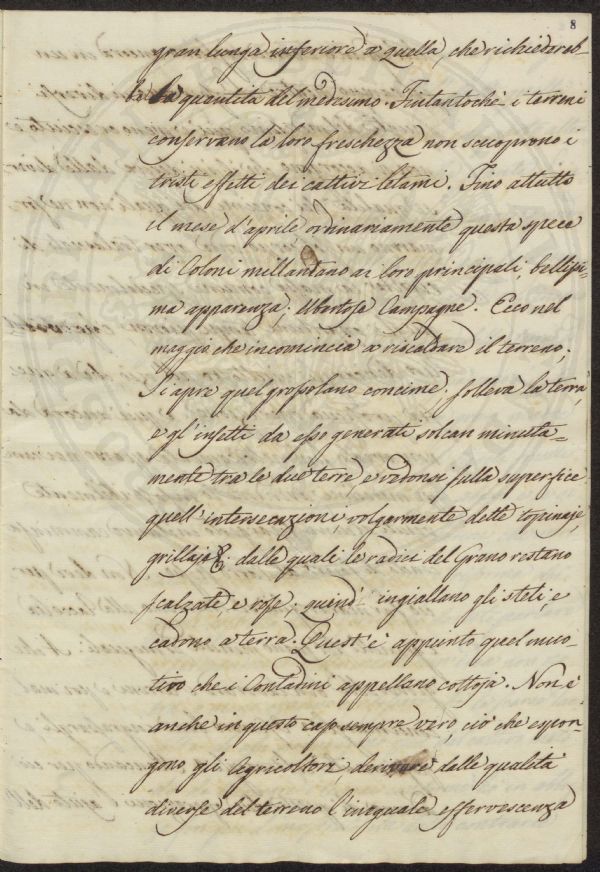 8
gran lunga inferiore a quella, che richiedereb-
be la quantità del medesimo. Fintantochè i terreni
conservano la loro freschezza non scuoprono i
tristi effetti dei cattivi letami. Fino attutto
il mese d'aprile ordinariamente questa spece
di Coloni millantano ai loro principali, bellissi-
ma apparenza, Ubertose Campagne. Ecco nel
maggio che incomincia a riscaldare il terreno,
si apre quel grossolano concime, solleva la terra,
e gl'insetti da esso generati solcan minuta=
mente tra le due terre, e vedonsi sulla superfice
quell'intersecazioni, volgarmente dette topinaje,
grillaje &. dalle quali le radici del Grano restano
scalzate, e rose; quindi ingiallano gli steli, e
cadono a terra. Quest'è appunto quel mo-
tivo che i Contadini appellano cottoja. Non è
anche in questo caso sempre vero, ciò che espon-
gono, gli Agricoltori derivare dalle qualità
diverse del terreno l'ineguale effervescenza